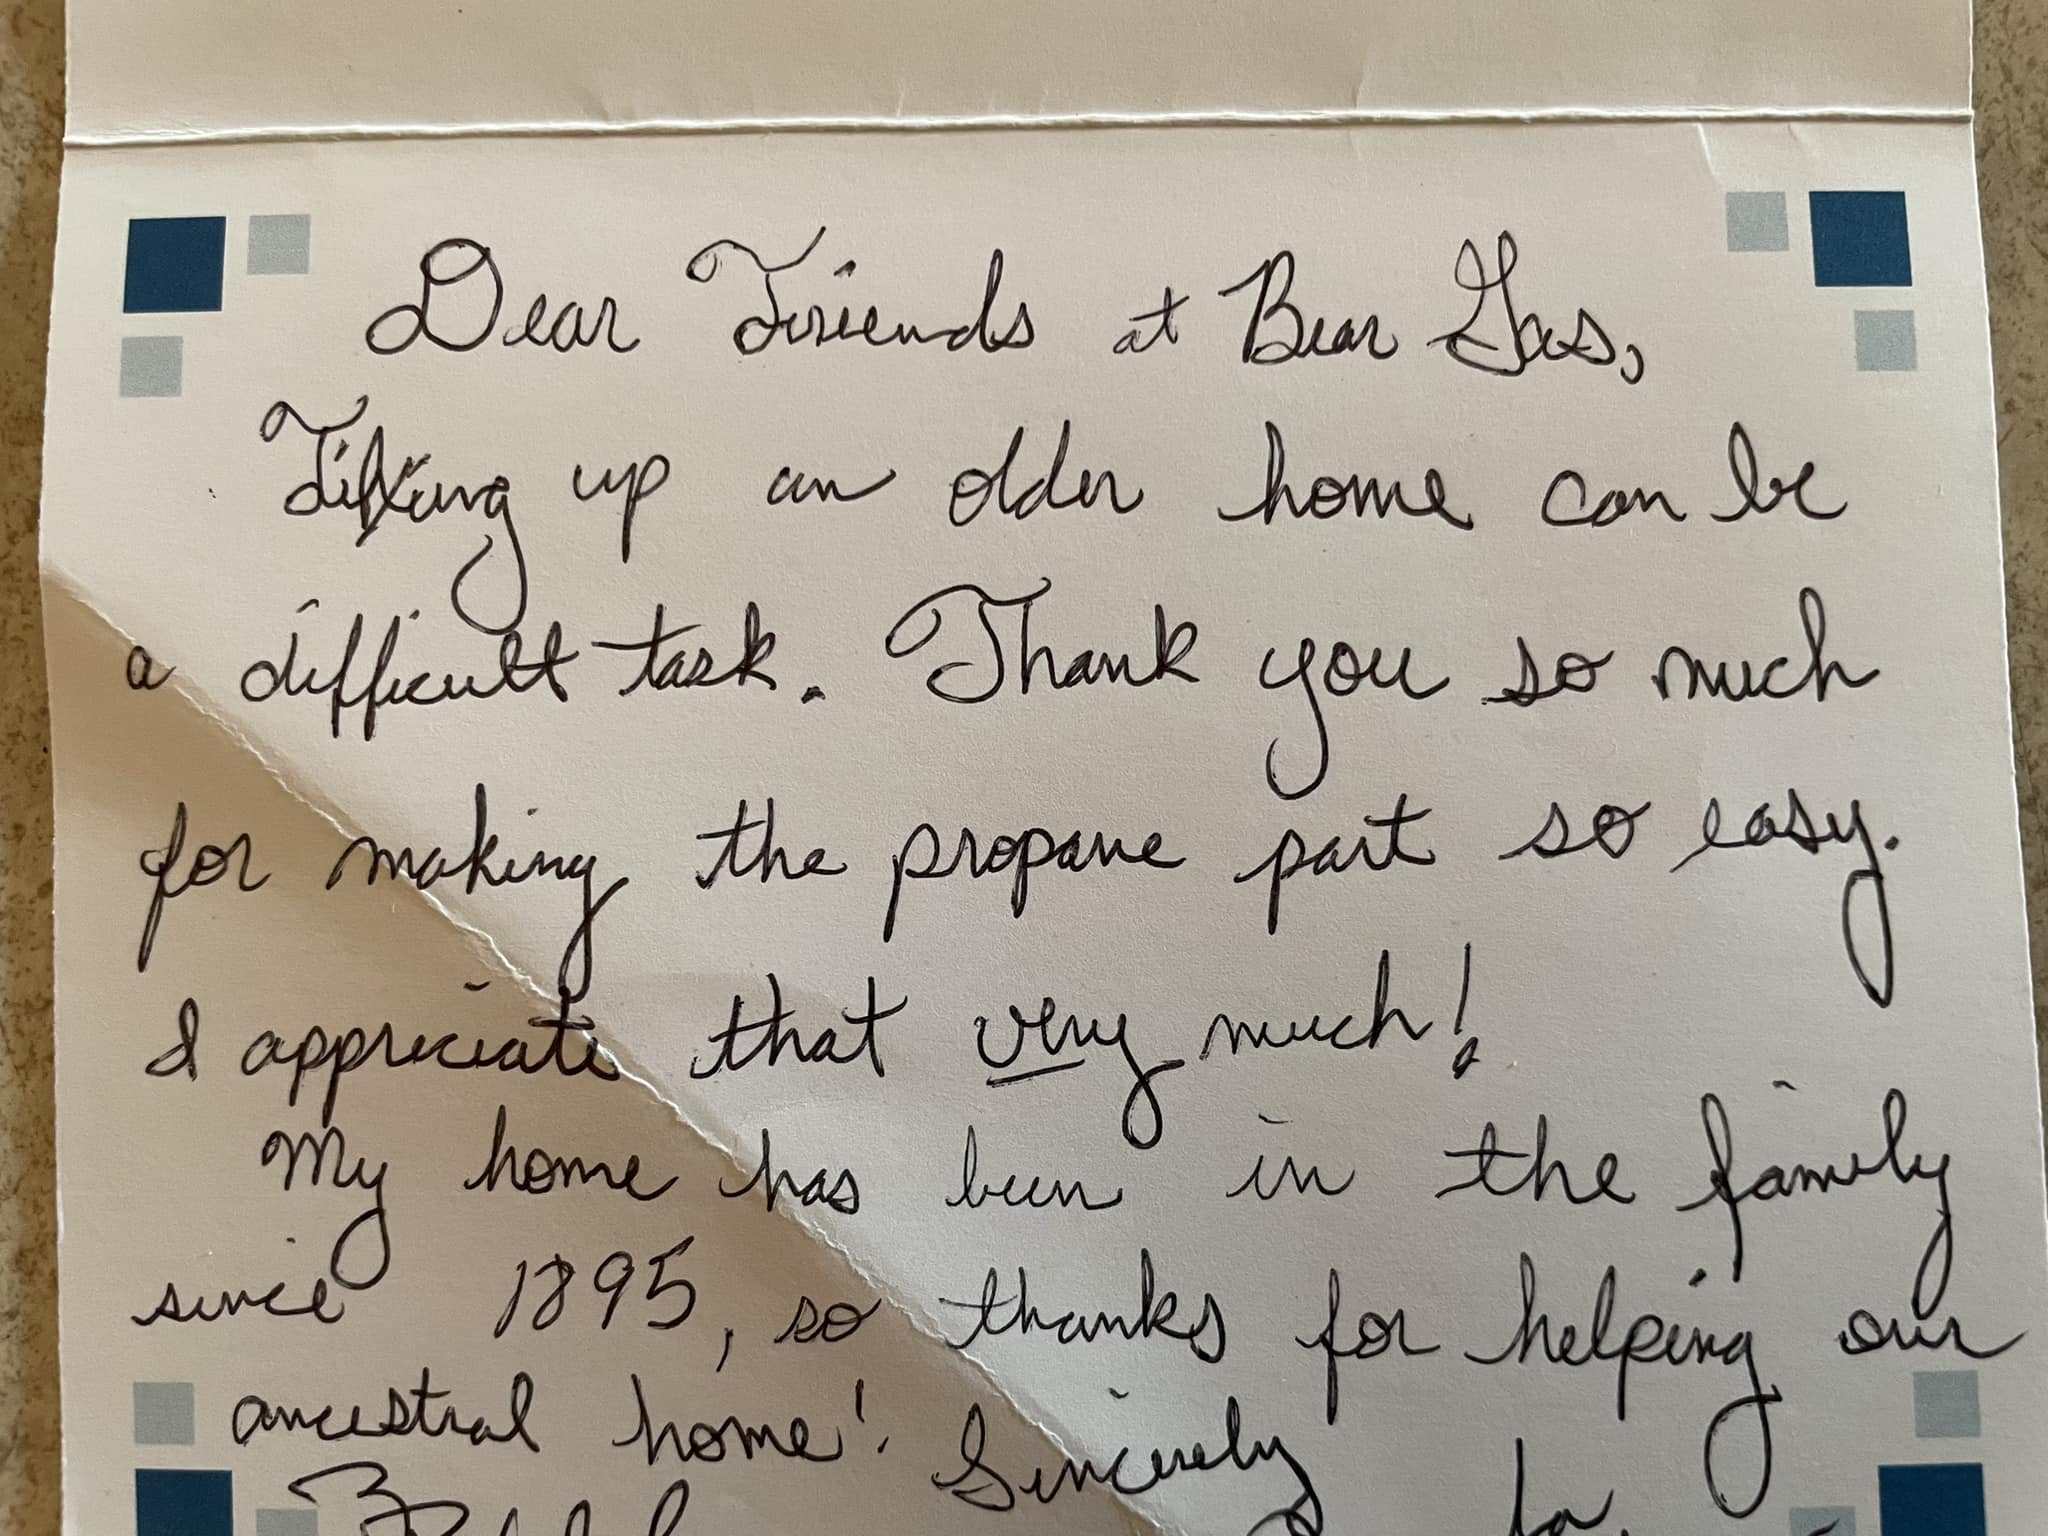 Dear Friends at Bear Gas,
Fixing up an older home can be
a difficult task. Thank you so much
for making the propane part so easy.
I appreciate that very much!
My home has been in the family
since 1895, so thanks for helping our
ancestral home! Sincerely